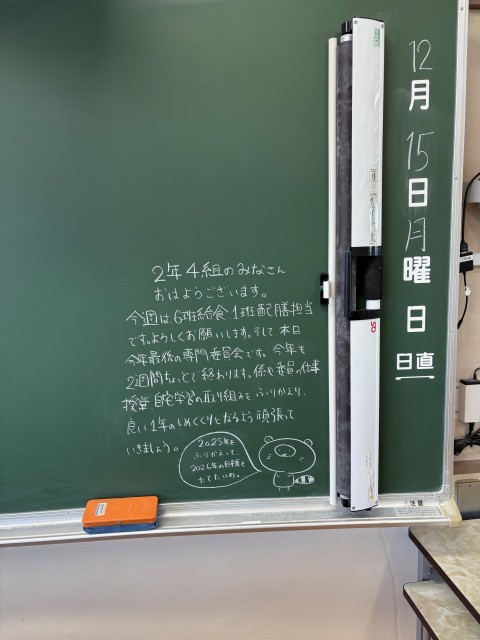 12
月
15
日
月
曜
日
日直
2年4組のみなさん
おはようございます。
今週は、6班給食、1班配膳担当
です。よろしくお願いします。そして本日
今年最後の専門委員会です。今年も
2週間ちょっとで終わります。係や委員の仕事
授業、自宅学習の取り組みをふりかえり、
良い1年のしめくくりとなるよう頑張って
いきましょう。
2025年を
ふりかえって、
2026年の目標を
たてたいね。
注意